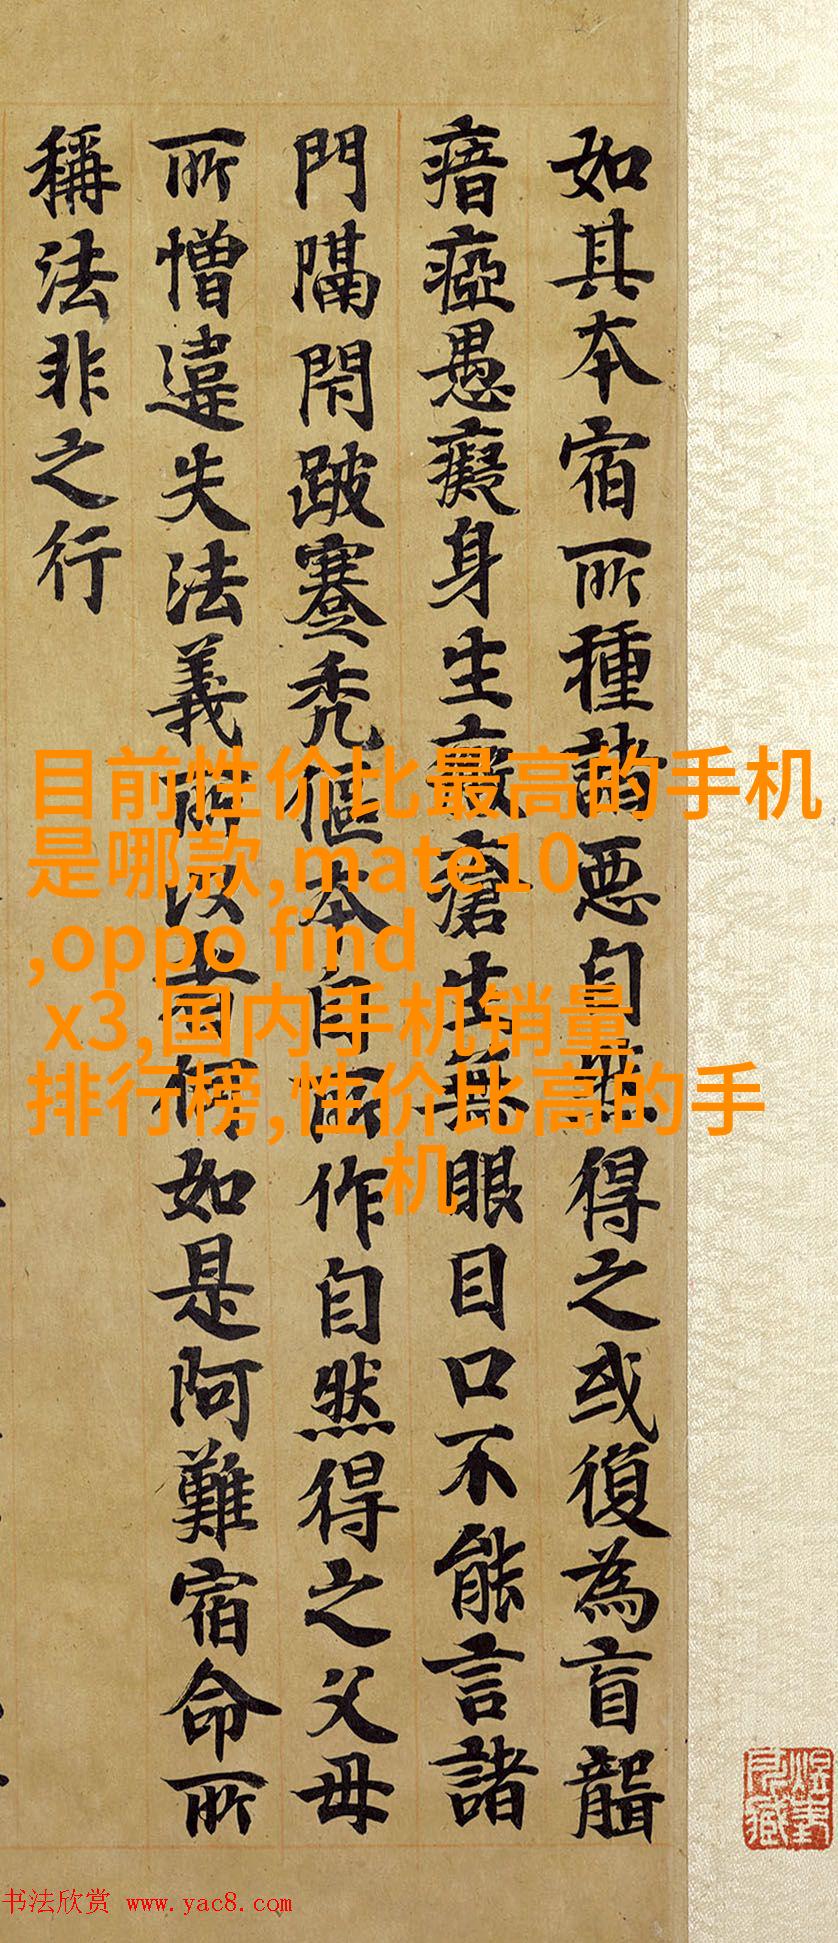 如其本宿所種諸惡自然得之或復為盲聾
瘖瘂愚癡身生瘡生無眼目口不能言諸
門隔閇跛蹇禿傴本自所作自然得之父母
所憎違失法義如是阿難宿命所
稱法非之行
目前性价比最高的手机
是哪款,mate10
,oppo find
x3,国内手机销量
排行榜,性价比高的手
机
书法欣赏 www.yac8.com